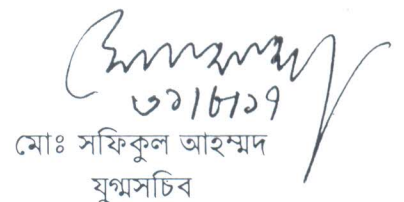 ৩১/৮/১৭
মোঃ সফিকুল আহম্মদ
যুগ্মসচিব